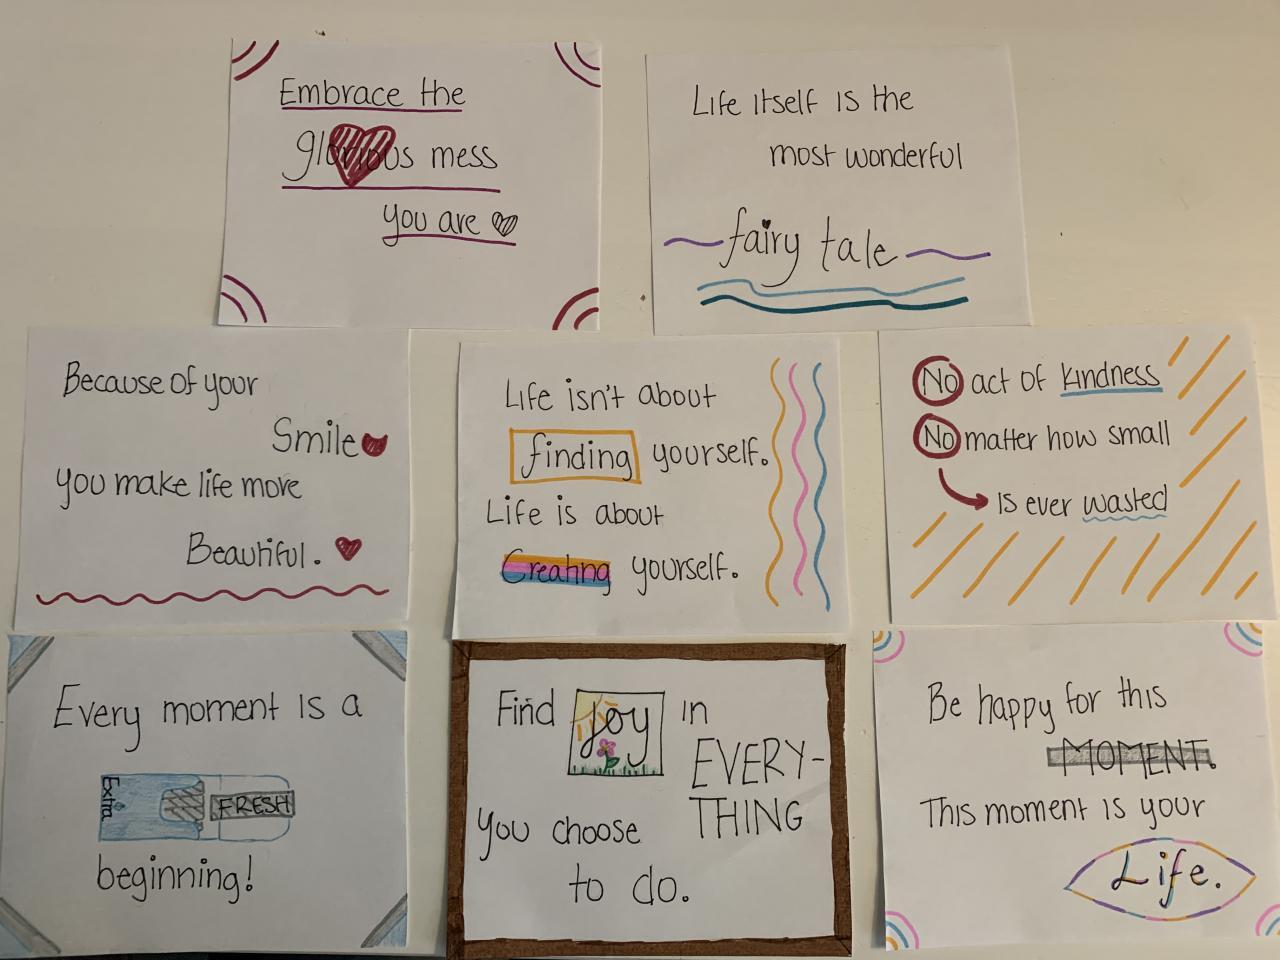 Embrace the
glorious mess
you are
Life itself is the
most wonderful
fairy tale
Because of your
Smile
you make life more
Beautiful.
Life isn't about
finding yourself.
Life is about
Creating yourself.
No act of kindness
No matter how small
Is ever wasted
Every moment is a
Extra
FRESH
beginning!
Find joy in
EVERY-
THING
you choose
to do.
Be happy for this
MOMENT.
This moment is your
Life.